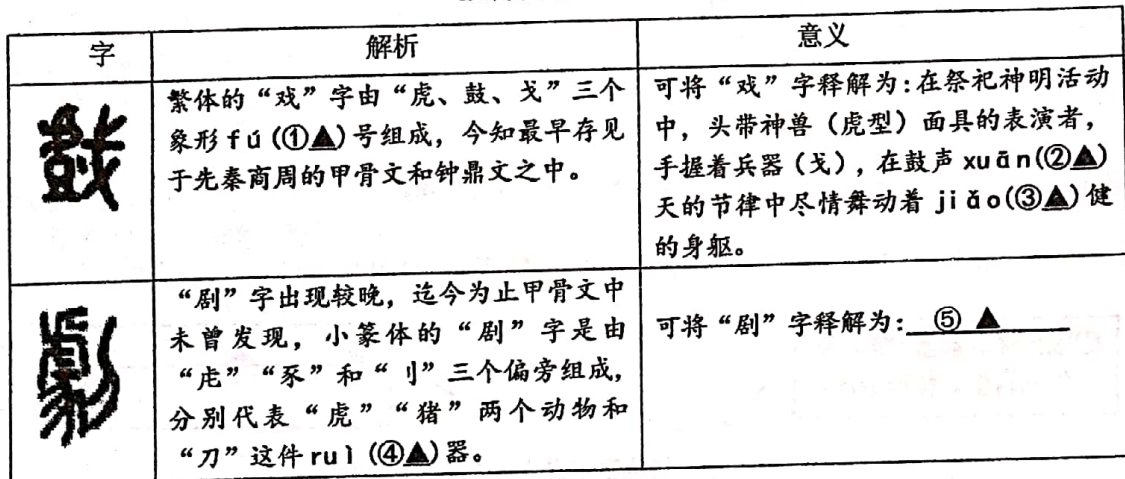 字 解析 意义
繁体的“戏”字由“虎、鼓、戈”三个
象形 fú (①▲)号组成，今知最早存见
于先秦商周的甲骨文和钟鼎文之中。
可将“戏”字释解为：在祭祀神明活动
中，头带神兽（虎型）面具的表演者，
手握着兵器（戈），在鼓声 xuān(②▲)
天的节律中尽情舞动着 jiǎo(③▲)健
的身躯。
“剧”字出现较晚，迄今为止甲骨文中
未曾发现，小篆体的“剧”字是由
“虍”“豕”和“刂”三个偏旁组成，
分别代表“虎”“猪”两个动物和
“刀”这件 ruì (④▲)器。
可将“剧”字释解为：⑤ ▲